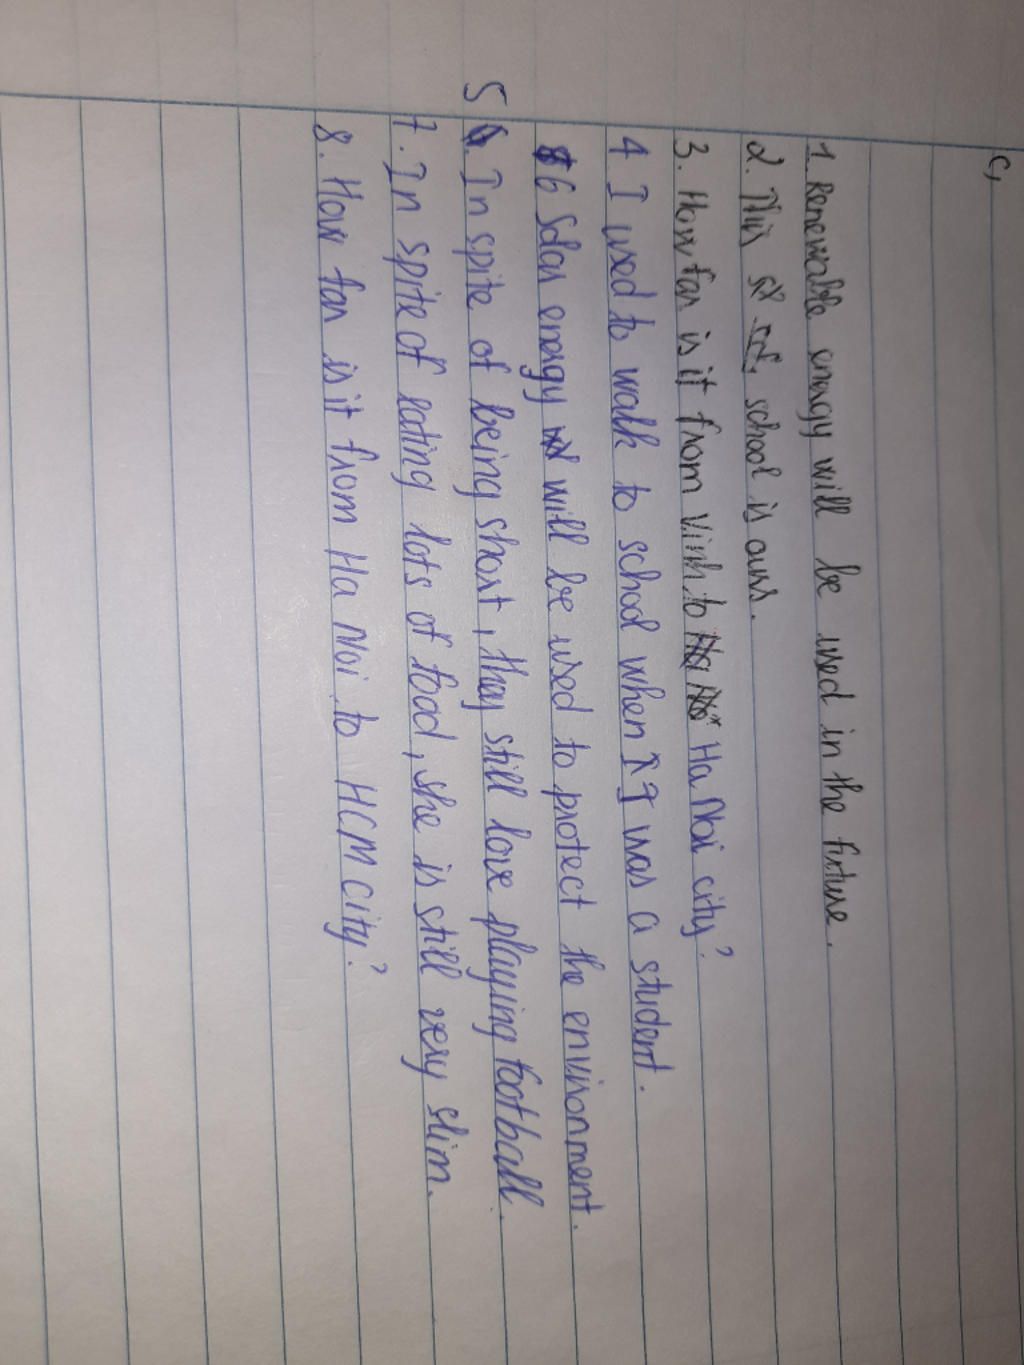 C,
1. Renewable energy will be used in the future.
2. This school is ours.
3. How far is it from Vinh to Ha Noi city?
4 I used to walk to school when I was a student.
6 Solar energy will be used to protect the environment.
5. In spite of being short, they still love playing football.
7. In spite of eating lots of food, she is still very slim.
8. How far is it from Ha Noi to HCM city?